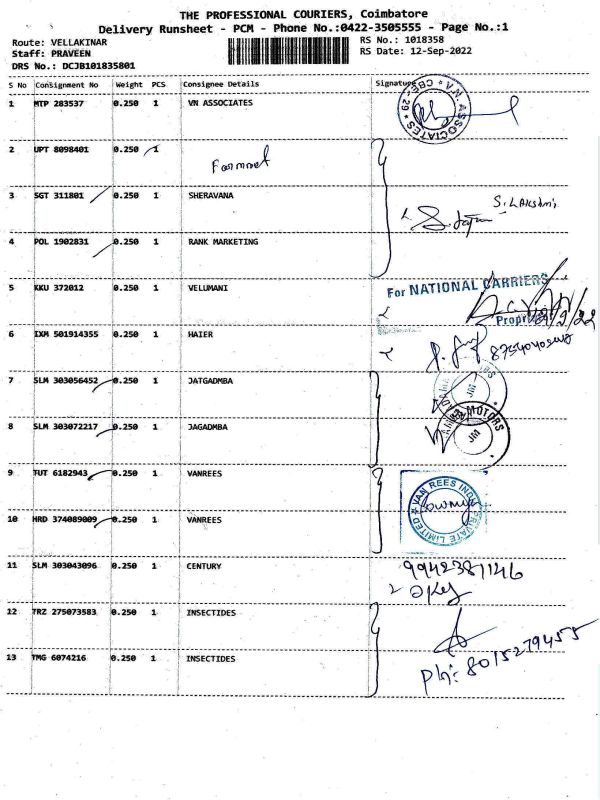 THE PROFESSIONAL COURIERS, Coimbatore
Delivery Runsheet - PCM - Phone No.:0422-3505555 - Page No.:1
Route: VELLAKINAR
RS No.: 1018358
Staff: PRAVEEN
RS Date: 12-Sep-2022
DRS No.: DCJB101835801
S No Consignment No Weight PCS Consignee Details Signature
1 MTP 283537 0.250 1 VN ASSOCIATES
V.N. ASSOCIATES * CBE-29 *
2 UPT 8098401 0.250 1
3 SGT 311801 0.250 1 SHERAVANA
S. LAkshmi
4 POL 1902831 0.250 1 RANK MARKETING
5 KKU 372012 0.250 1 VELUMANI
For NATIONAL CARRIERS
6 IXM 501914355 0.250 1 HAIER
7 SLM 303056452 0.250 1 JATGADMBA
JM
8 SLM 303072217 0.250 1 JAGADMBA
MOTORS
JM
9 TUT 6182943 0.250 1 VANREES
VAN REES
LIMITED
10 HRD 374089009 0.250 1 VANREES
11 SLM 303043096 0.250 1 CENTURY
9942387146
12 TRZ 275073583 0.250 1 INSECTIDES
13 TMG 6074216 0.250 1 INSECTIDES
Ph: 8015279455